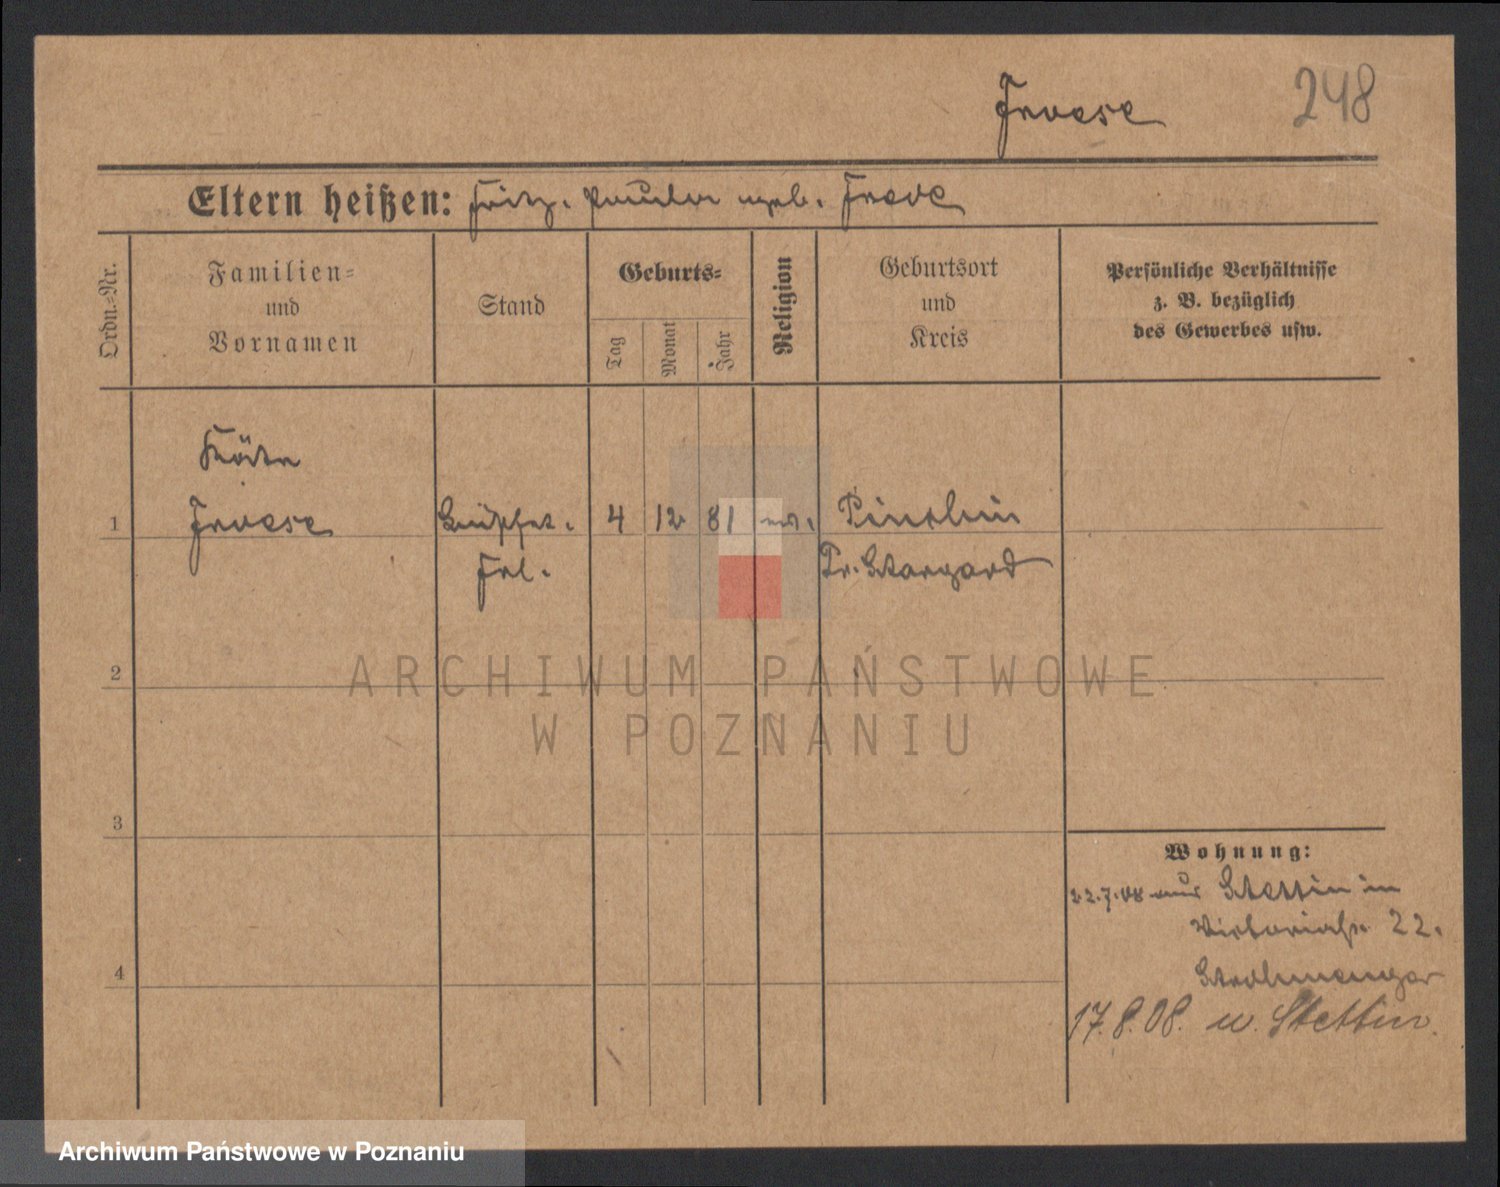 Froese 248
Eltern heißen: Fritz. Paula geb. Frese
Ordn.=Nr.
Familien=
und
Vornamen
Stand
Geburts=
Tag
Monat
Jahr
Religion
Geburtsort
und
Kreis
Persönliche Verhältnisse
z. B. bezüglich
des Gewerbes usw.
Käte
1 Froese Büffet. 4 12 81 ev. Pinschin
Frl. Pr. Stargard
2
ARCHIWUM PAŃSTWOWE
W POZNANIU
3
Wohnung:
22.7.08 aus Stettin in
Victoriastr. 22.
4
17.8.08. n. Stettin.
Archiwum Państwowe w Poznaniu